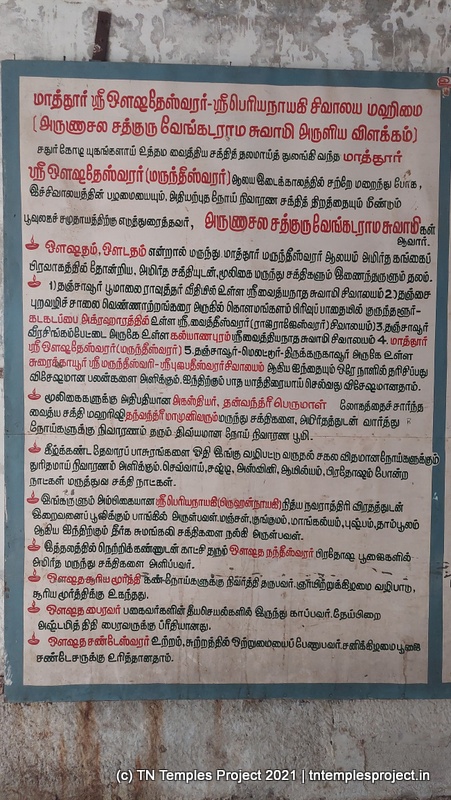 மாத்தூர் ஸ்ரீ ஔஷதேஸ்வரர்-ஸ்ரீ பெரியநாயகி சிவாலய மஹிமை
(அருணாசல சத்குரு வேங்கடராம சுவாமி அருளிய விளக்கம்)
சதுர்கோடி யுகங்களாய் உத்தம வைத்திய சக்தித் தலமாய்த் துலங்கி வந்த மாத்தூர்
ஸ்ரீ ஔஷதேஸ்வரர் (மருந்தீஸ்வரர்) ஆலய இடைக்காலத்தில் சற்றே மறைந்து போக,
இச்சிவாலயத்தின் பழமையையும், அதியற்புத நோய் நிவாரண சக்தித் திறத்தையும் மீண்டும்
பூவுலகச் சமுதாயத்திற்கு எடுத்துரைத்தவர், அருணாசல சத்குரு வேங்கடராம சுவாமிகள்
ஆவார்.
ஔஷதம், ஔடதம் என்றால் மருந்து மாத்தூர் மருந்தீஸ்வரர் ஆலயம் அமிர்த கங்கைப்
பிரவாகத்தில் தோன்றிய, அமிர்த சக்தியுடன், மூலிகை மருந்து சக்திகளும் இணைந்தருளும் தலம்.
1) தஞ்சாவூர் பூமாலை ராவுத்தர் வீதியில் உள்ள ஸ்ரீ வைத்யநாத சுவாமி சிவாலயம் 2) தஞ்சை
புறவழிச் சாலை வெண்ணாற்றங்கரை அருகில் கொளமங்களம் பிரிவுப் பாதையில் குருந்தளூர்-
கடகடப்பை அக்ரஹாரத்தில் உள்ள ஸ்ரீ வைத்தீஸ்வரர் (ராஜராஜேஸ்வரர்) சிவாலயம் 3. தஞ்சாவூர்
வீரசிங்கம்பேட்டை அருகே உள்ள கல்யாணபுரம் ஸ்ரீ வைத்தியநாத சுவாமி சிவாலயம் 4. மாத்தூர்
ஸ்ரீ ஔஷதேஸ்வரர் (மருந்தீஸ்வரர்) 5. தஞ்சாவூர்-மெலட்டூர்-திருக்கருகாவூர் அருகே உள்ள
சுரைத்தாயூர் ஸ்ரீ மருந்தீஸ்வரி-ஸ்ரீ சிவாலயம் ஆகிய ஐந்தையும் ஒரே நாளில் தரிசிப்பது
விசேஷமான பலன்களை அளிக்கும். ஐந்திற்கும் பாத யாத்திரையாய் செல்வது விசேஷமானதாம்.
மூலிகைகளுக்கு அதிபதியான அகஸ்தியர், தன்வந்த்ரீ பெருமாள் லோகத்தைச் சார்ந்த
வைத்ய சக்தி மஹரிஷி தன்வந்த்ரீ மாமுனிவரும் மருந்து சக்திகளை, அமிர்தத்துடன் வார்த்து
நோய்களுக்கு நிவாரணம் தரும் திவ்யமான நோய் நிவாரண பூமி.
கீழ்க்கண்ட தேவாரப் பாசுரங்களை ஓதி இங்கு வழிபட்டு வருதல் சகல விதமான நோய்களுக்கும்
துரிதமாய் நிவாரணம் அளிக்கும். செவ்வாய், சஷ்டி, அஸ்வினி, ஆயில்யம், பிரதோஷம் போன்ற
நாட்கள் மருத்துவ சக்தி நாட்கள்.
இங்கருளும் அம்பிகையான ஸ்ரீ பெரியநாயகி (பிரஹன்நாயகி) நித்ய நவராத்திரி விரதத்துடன்
இறைவனைப் பூஜிக்கும் பாங்கில் அருள்பவள். மஞ்சள், குங்குமம், மாங்கல்யம், புஷ்பம், தாம்பூலம்
ஆகிய ஐந்திற்கும் தீர்க்க சுமங்கலி சக்திகளை நல்கி அருள்பவள்.
இத்தலத்தில் நெற்றிக்கண்ணுடன் காட்சி தரும் ஔஷத நந்தீஸ்வரர் பிரதோஷ பூஜைகளில்
அமிர்த மருந்து சக்திகளை அளிப்பவர்.
ஔஷத சூரிய மூர்த்தி கண் நோய்களுக்கு நிவர்த்தி தருபவர். ஞாயிற்றுக்கிழமை வழிபாடு,
சூரிய மூர்த்திக்கு உகந்தது.
ஔஷத பைரவர் பகைவர்களின் தீயசெயல்களில் இருந்து காப்பவர். தேய்பிறை
அஷ்டமித் திதி பைரவருக்கு ப்ரீதியானது.
ஔஷத சண்டேஸ்வரர் உற்றம், சுற்றத்தில் ஒற்றுமையைப் பேணுபவர். சனிக்கிழமை பூஜை
சண்டேசருக்கு உரித்தானதாம்.
(c) TN Temples Project 2021 | tntemplesproject.in